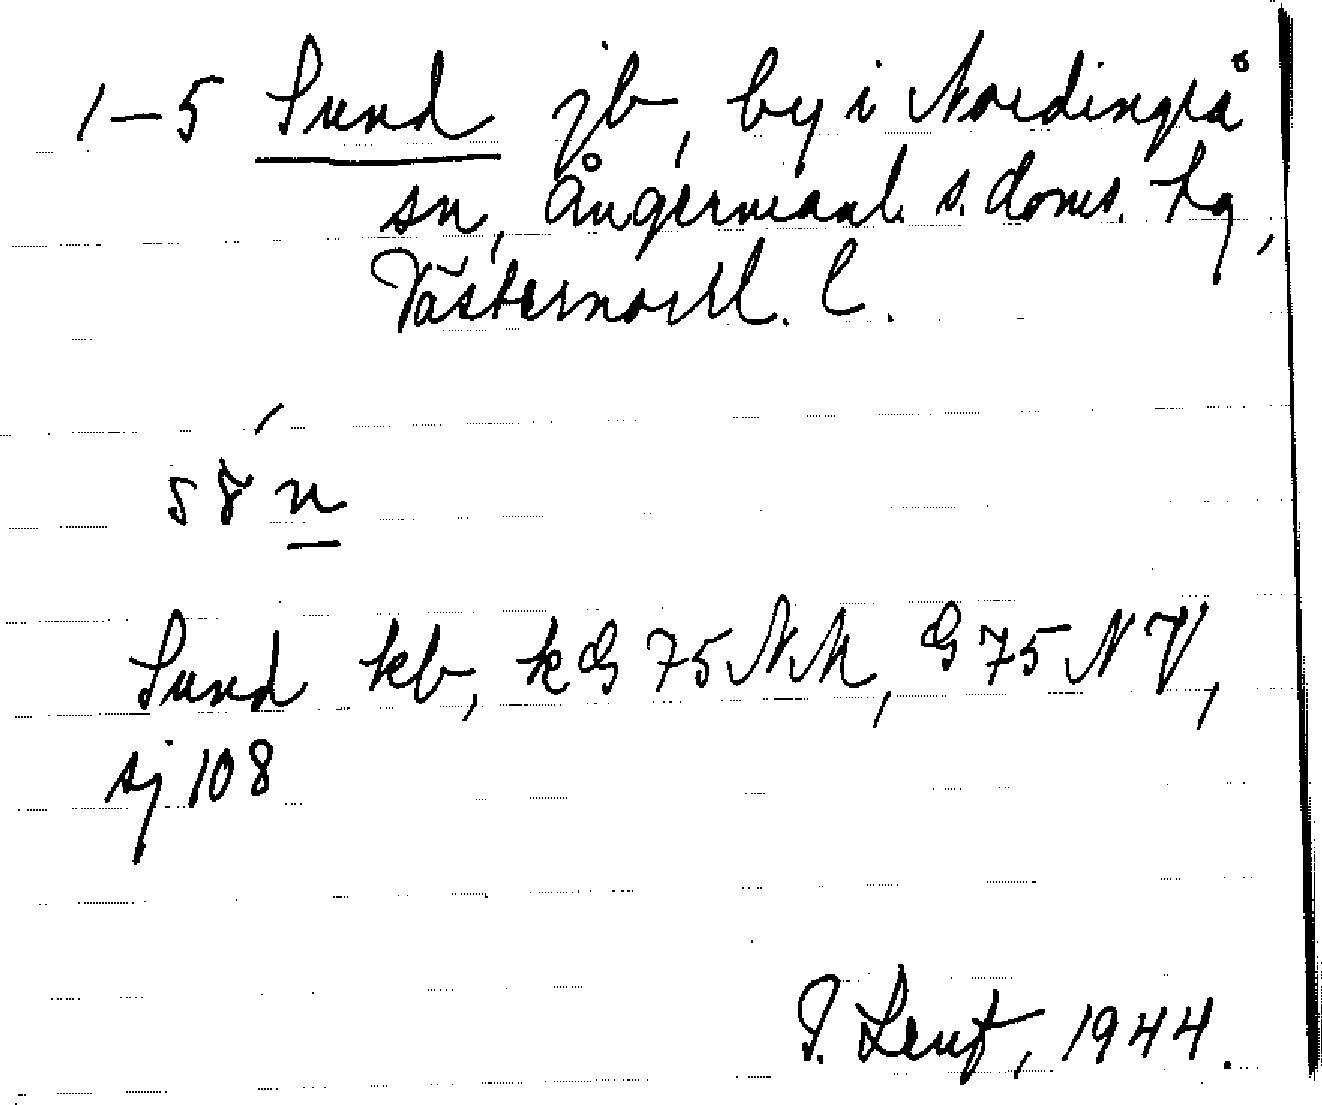 1-5 Sund jb, by i Nordingrå
sn, Ångermanl. s. doms. hg,
Västernorrl. l.
Sund kb, kG 75 NM, G 75 NV,
sj 108
P. Lenf, 1944.